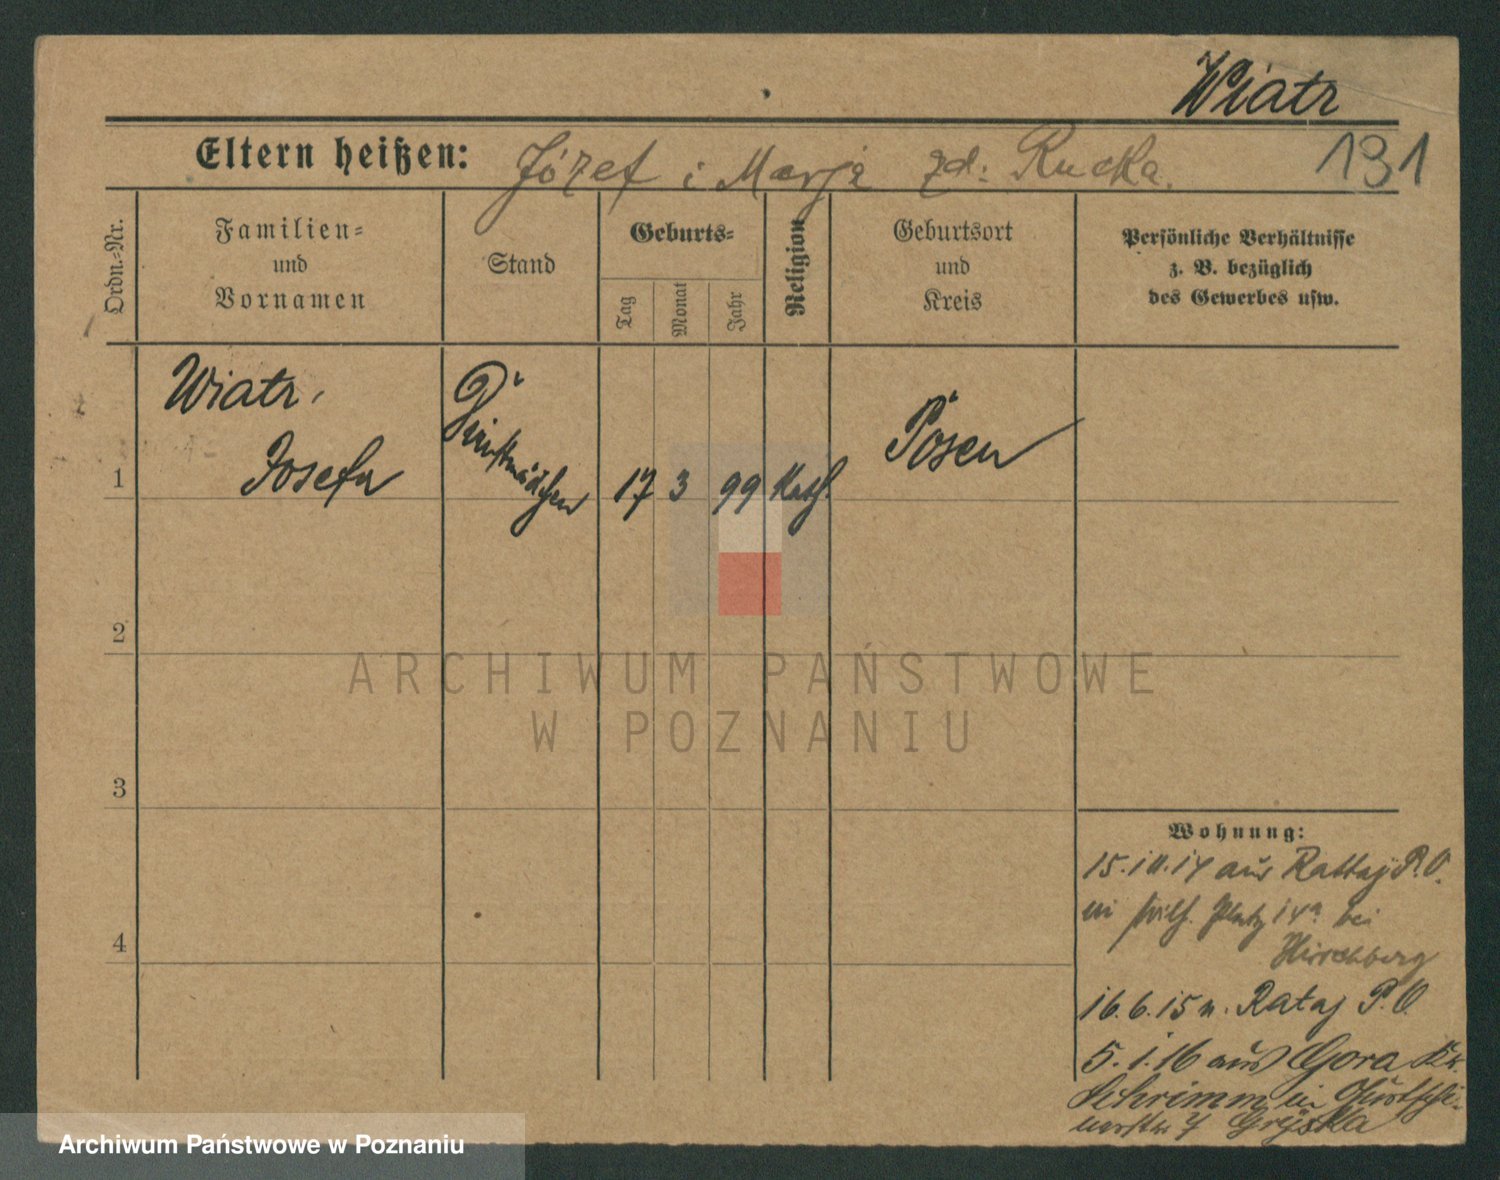 Wiatr
131
Eltern heißen: Józef i Marja zd: Rucka.
Ordn.-Nr.
Familien-
und
Vornamen
Stand
Geburts-
Tag
Monat
Jahr
Religion
Geburtsort
und
Kreis
Persönliche Verhältnisse
z. B. bezüglich
des Gewerbes usw.
1
Wiatr,
Josefa
Dienstmädchen
17 3 99 Kath.
Posen
2
3
4
Wohnung:
15.10.14 aus Rattaj P. O.
in Wilh. Platz 14a bei
Hirschberg
16.6.15 n. Rataj P. O.
5.1.16 aus Gora Kr.
Schrimm in
ARCHIWUM PAŃSTWOWE
W POZNANIU
Archiwum Państwowe w Poznaniu